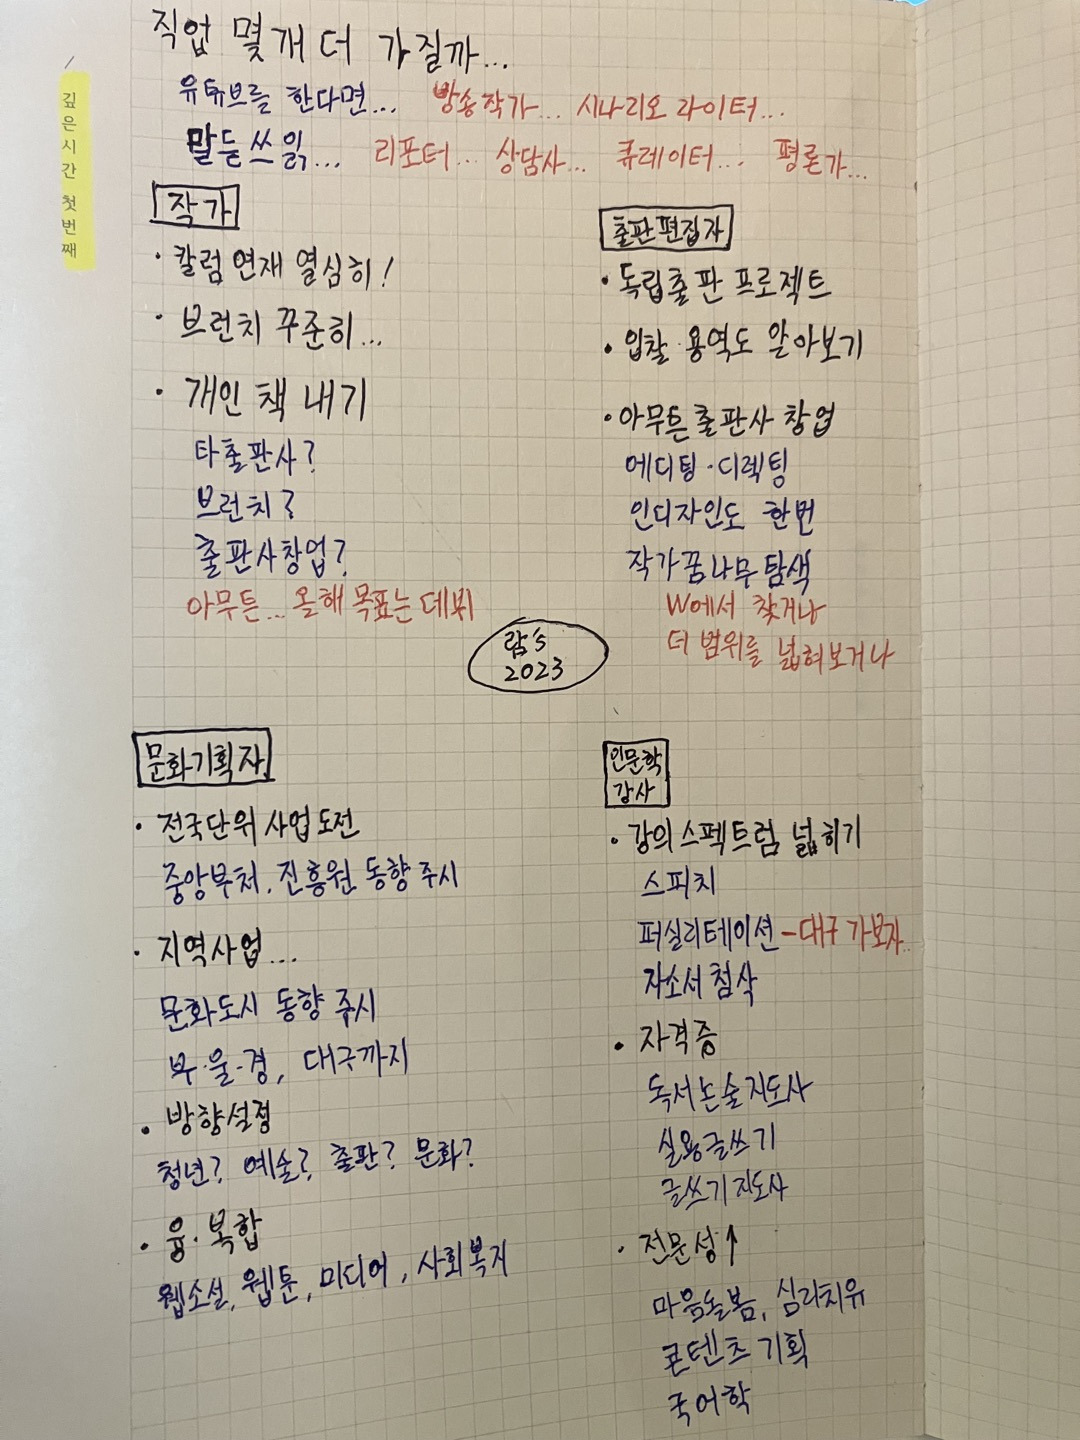 깊은시간 첫번째
직업 몇개 더 가질까...
유튜브를 한다면... 방송작가... 시나리오 라이터...
말듣쓰읽... 리포터... 상담사... 큐레이터... 평론가...
작가
· 칼럼 연재 열심히!
· 브런치 꾸준히...
· 개인 책 내기
타출판사?
브런치?
출판사창업?
아무튼... 올해 목표는 데뷔
출판편집자
· 독립출판 프로젝트
· 입찰·용역도 알아보기
· 아무튼출판사 창업
에디팅·디렉팅
인디자인도 한번
작가꿈나무탐색
W에서 찾거나
더 범위를 넓혀보거나
람's
2023
문화기획자
· 전국단위 사업 도전
중앙부처, 진흥원 동향 주시
· 지역사업...
문화도시 동향 주시
부·울·경, 대구까지
· 방향설정
청년? 예술? 출판? 문화?
· 융·복합
웹소설, 웹툰, 미디어, 사회복지
인문학
강사
· 강의스펙트럼 넓히기
스피치
퍼실리테이션 - 대구 가보자..
자소서 첨삭
· 자격증
독서논술지도사
실용글쓰기
글쓰기지도사
· 전문성↑
마음돌봄, 심리치유
콘텐츠 기획
국어학